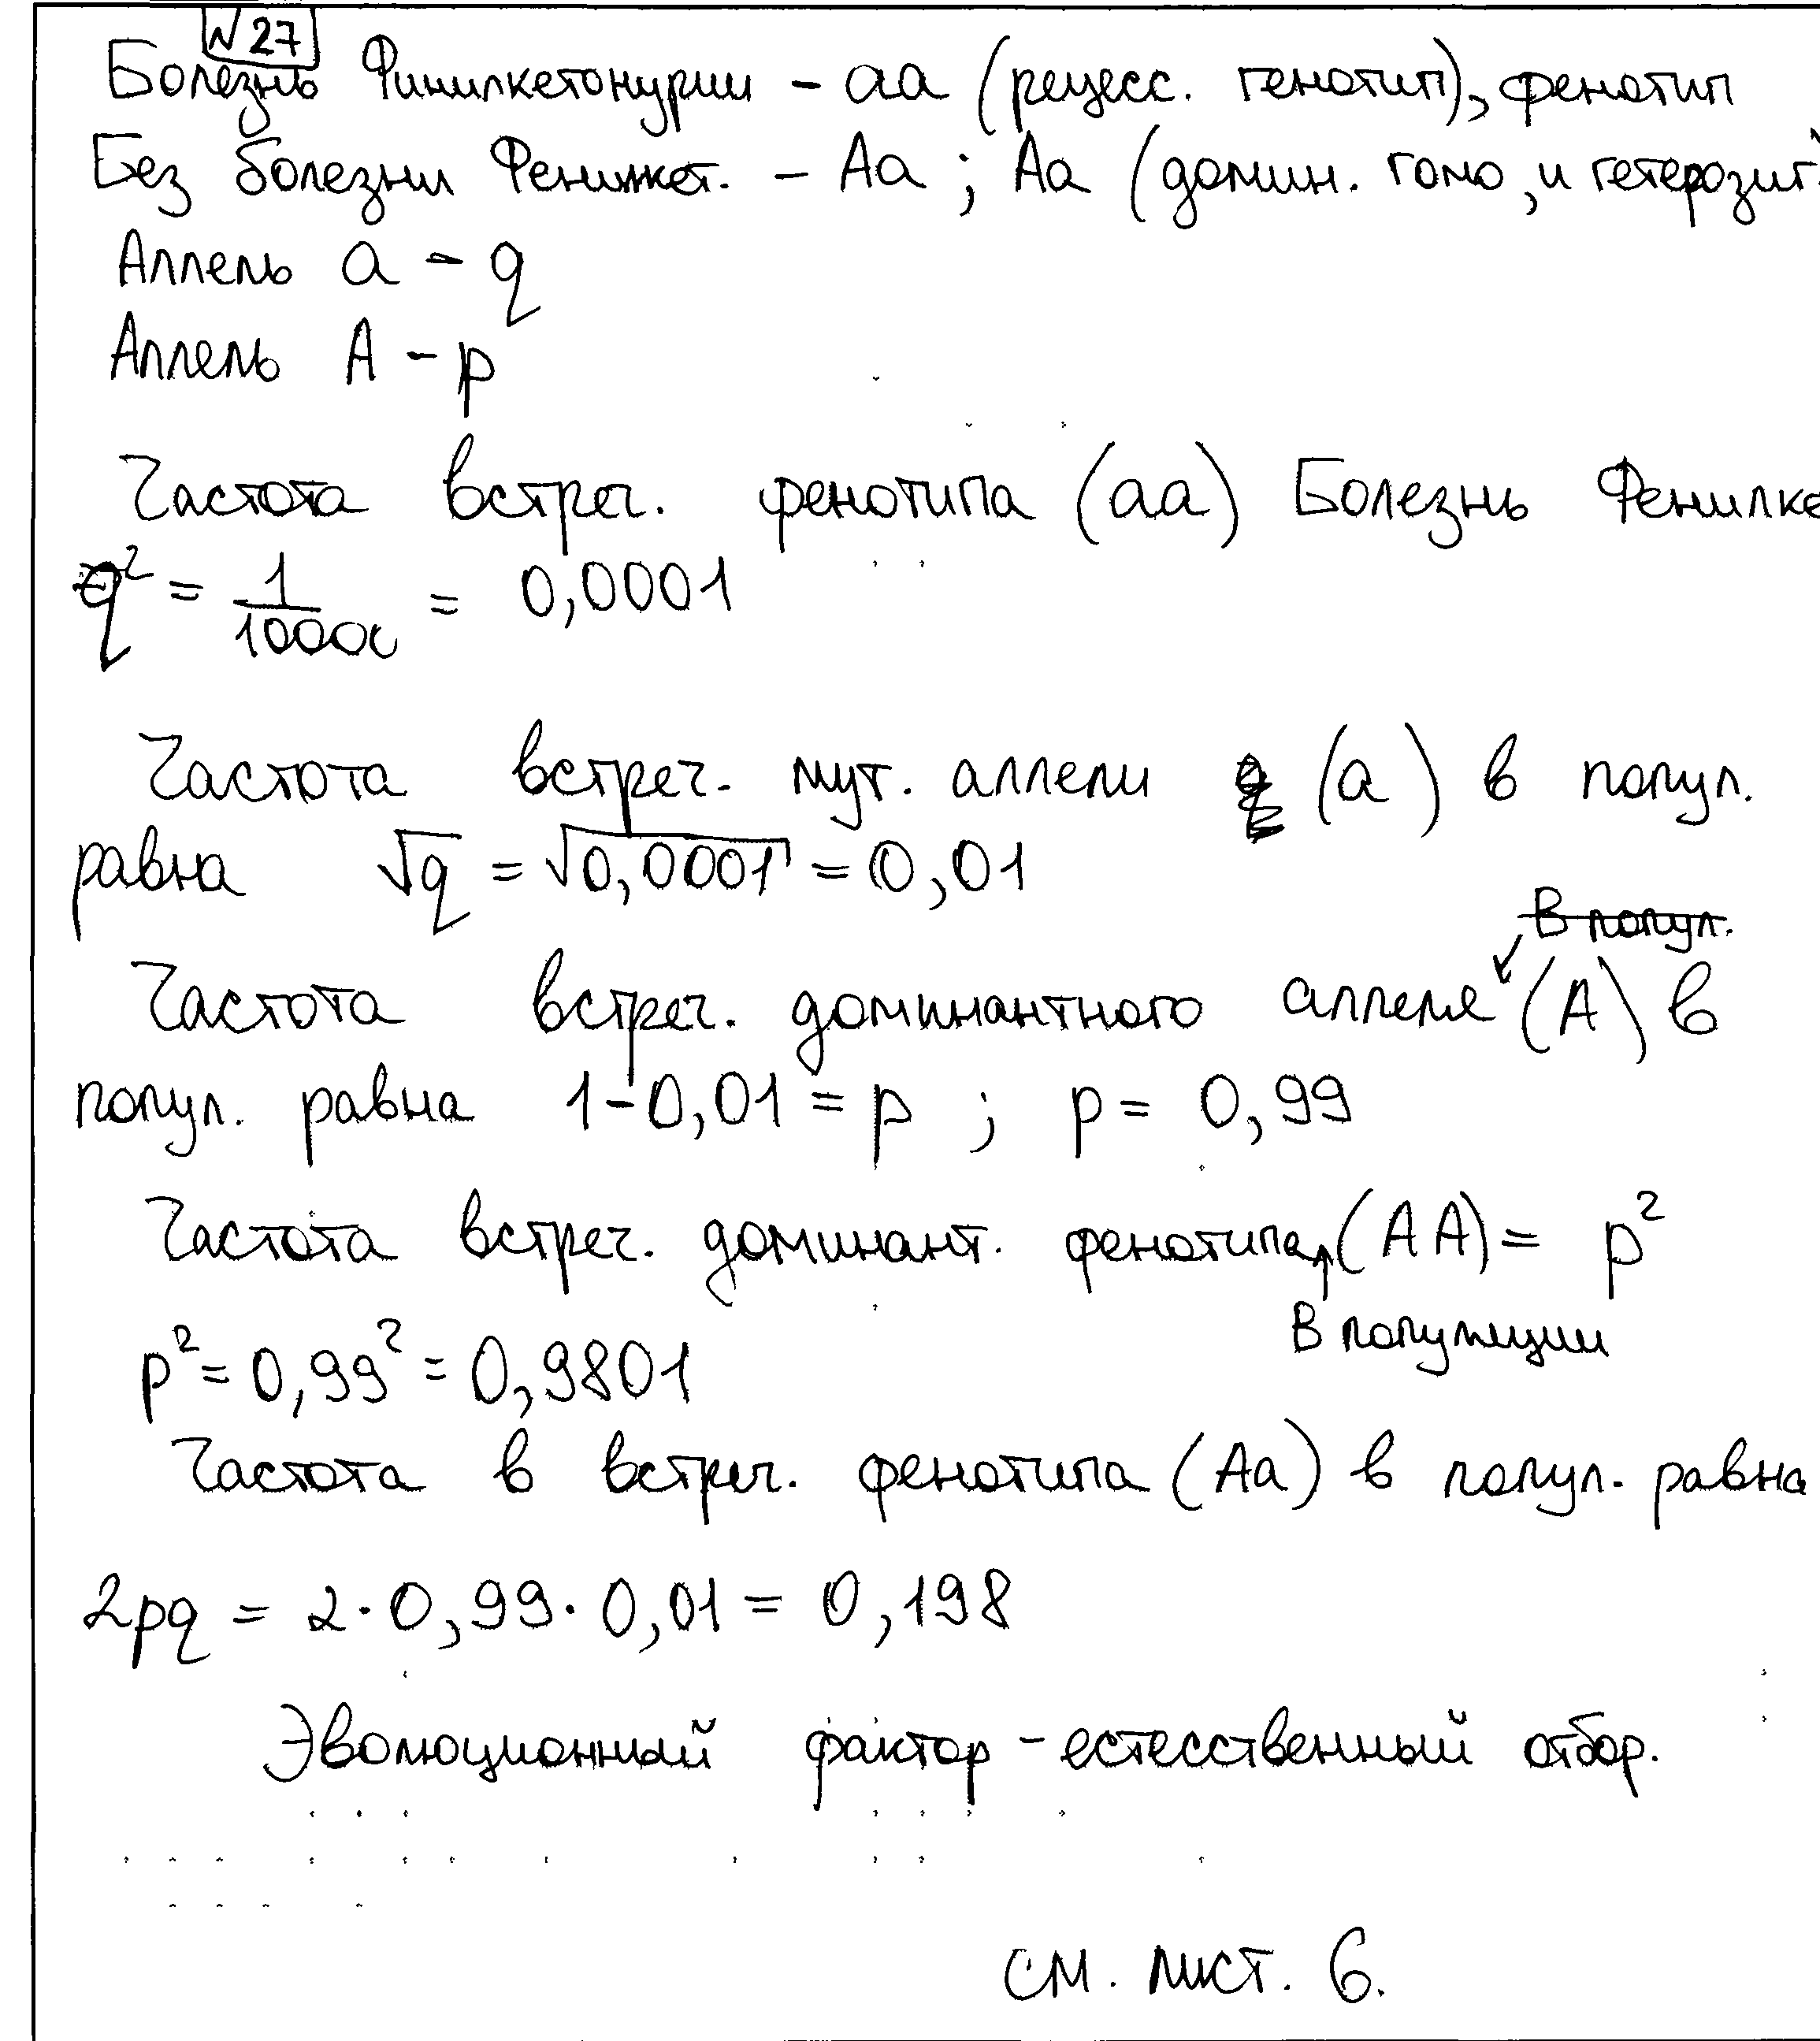 №27
Болезнь Финилкетонурии - аа (рецесс. генотип), фенотип
Без болезни Фенилкет. - Аа ; Аа (домин. гомо, и гетерозиг.
Аллель а - q
Аллель А - p
Частота встреч. фенотипа (аа) Болезнь Фенилке
q² = 1/10000 = 0,0001
Частота встреч. мут. аллели (а) в попул.
равна √q = √0,0001 = 0,01
В попул.
Частота встреч. доминантного аллеля (А) в
попул. равна 1-0,01 = p ; p = 0,99
Частота встреч. доминант. фенотипа (АА) = p²
В популяции
p² = 0,99² = 0,9801
Частота в встреч. фенотипа (Аа) в попул. равна
2pq = 2·0,99·0,01 = 0,198
Эволюционный фактор - естесственный отбор.
см. лист. 6.